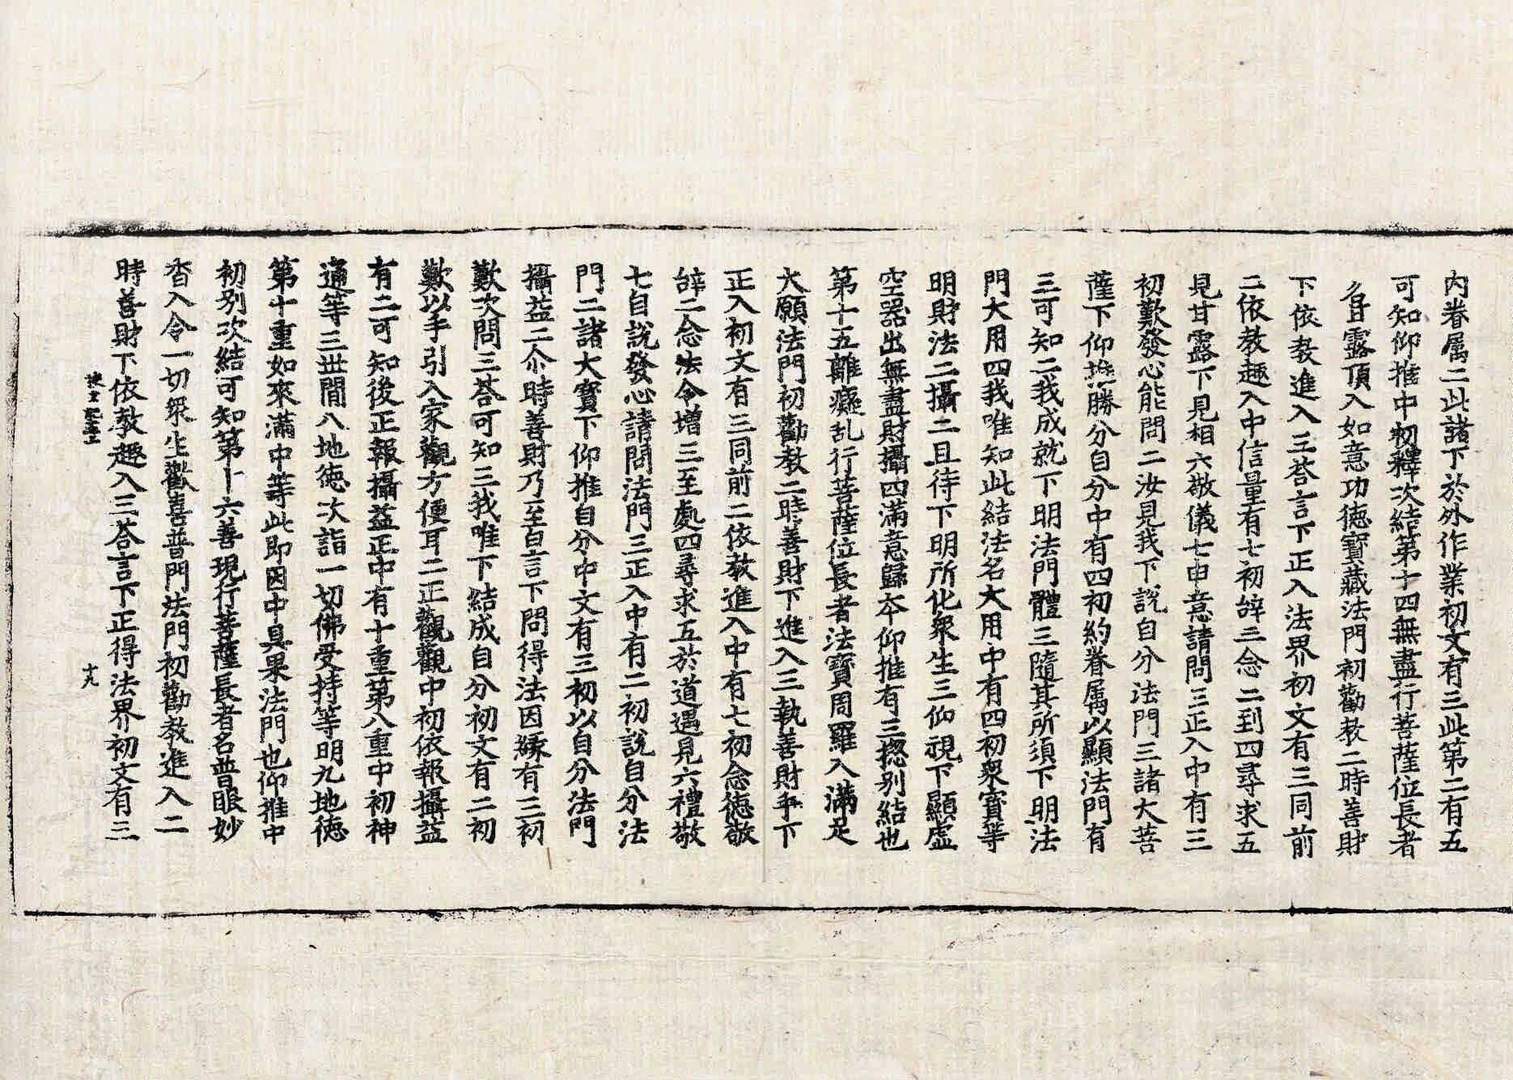 内眷属二此諸下於外作業初文有三此第二有五
可知仰推中初釋次結第十四無盡行菩薩位長者
名甘露頂入如意功徳寶藏法門初勸教二時善財
下依教進入三荅言下正入法界初文有三同前
二依教趣入中信量有七初辝三念二到四尋求五
見甘露下見相六敬儀七申意請問三正入中有三
初歎發心能問二汝見我下說自分法門三諸大菩
薩下仰推勝分自分中有四初約眷属以顯法門有
三可知二我成就下明法門體三隨其所須下明法
門大用四我唯知此結法名大用中有四初衆寶等
明財法二攝二且待下明所化衆生三仰視下顯虚
空器出無盡財攝四滿意歸本仰推有三揔别結也
第十五離癡乱行菩薩位長者法寶周羅入滿足
大願法門初勸教二時善財下進入三執善財手下
正入初文有三同前二依教進入中有七初念徳敬
辝二念法令増三至處四尋求五於道遇見六禮敬
七自說發心請問法門三正入中有二初說自分法
門二諸大寶下仰推自分中文有三初以自分法門
攝益二尒時善財乃至白言下問得法因緣有三初
歎次問三荅可知三我唯下結成自分初文有二初
歎以手引入家觀方便耳二正觀觀中初依報攝益
有二可知後正報攝益正中有十重第八重中初神
通等三世間八地徳次詣一切佛受持等明九地徳
第十重如來滿中等此即因中具果法門也仰推中
初别次結可知第十六善現行菩薩長者名普眼妙
香入令一切衆生歡喜普門法門初勸教進入二
時善財下依教趣入三荅言下正得法界初文有三
十九